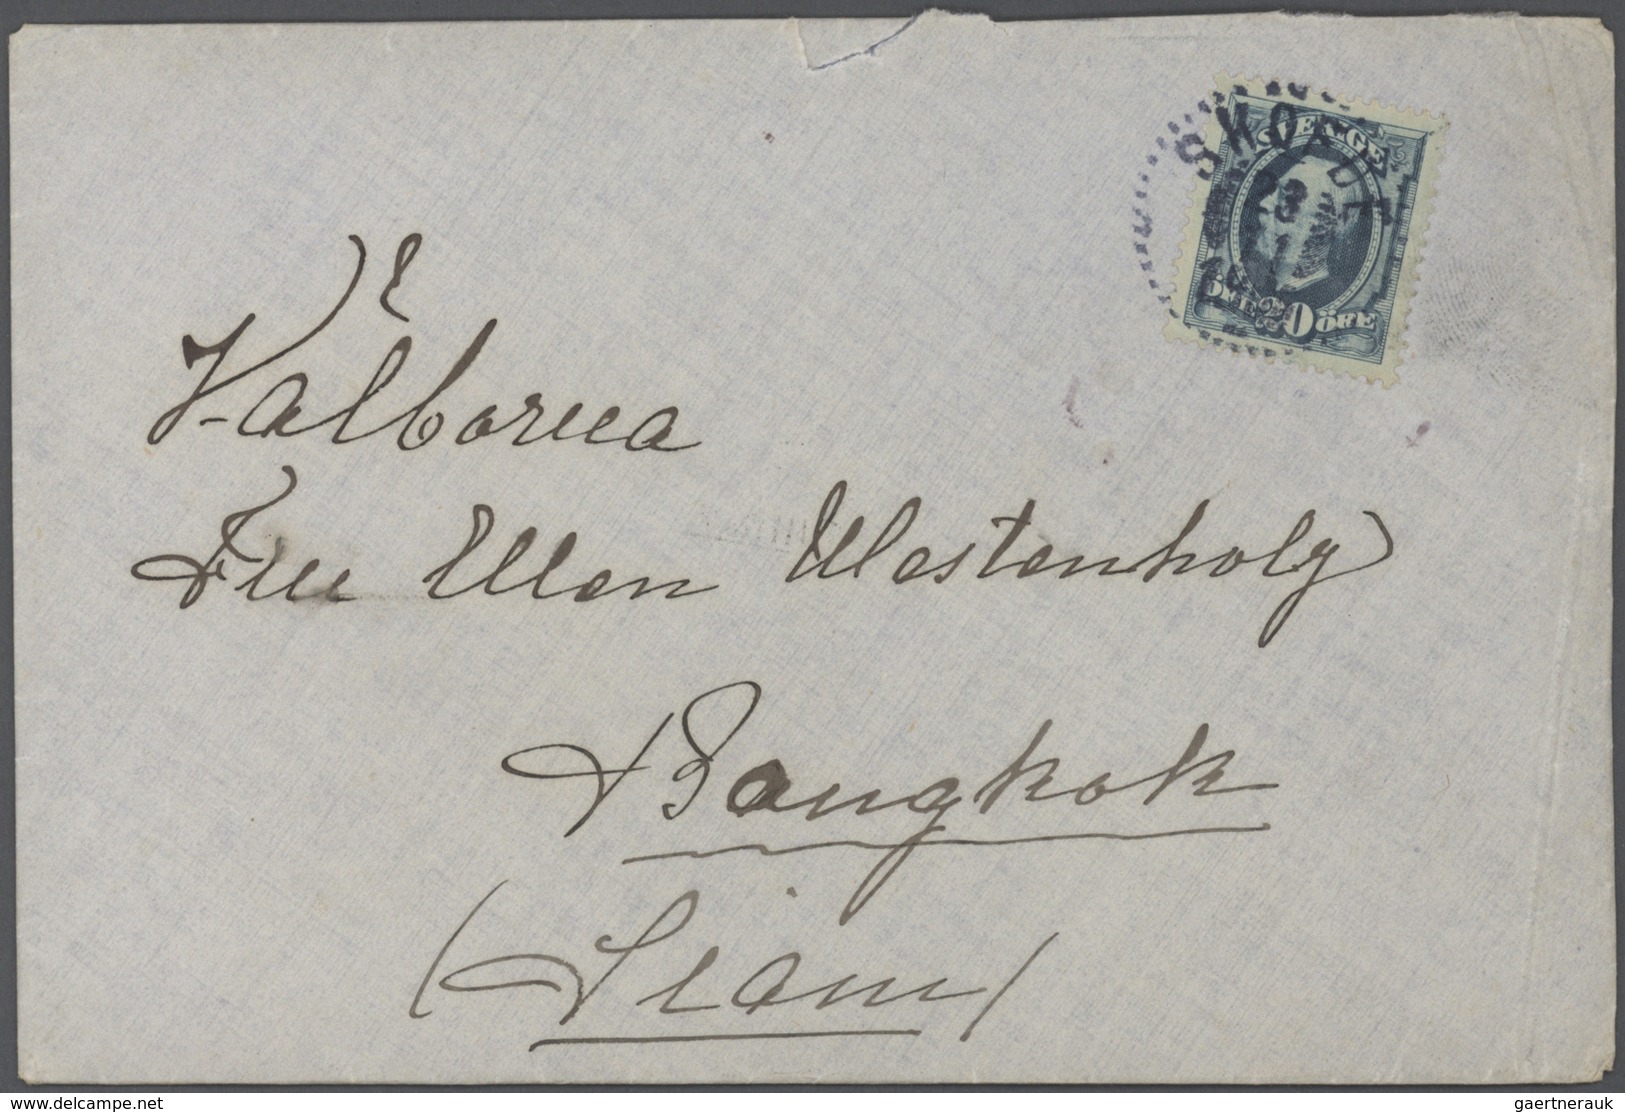 SKÖFDE
23
1
SVERIGE
20
ÖRE ÖRE
Välborna
Fru Ellen Westenholz
Bangkok
(Siam)
www.delcampe.net
gaertnerauk